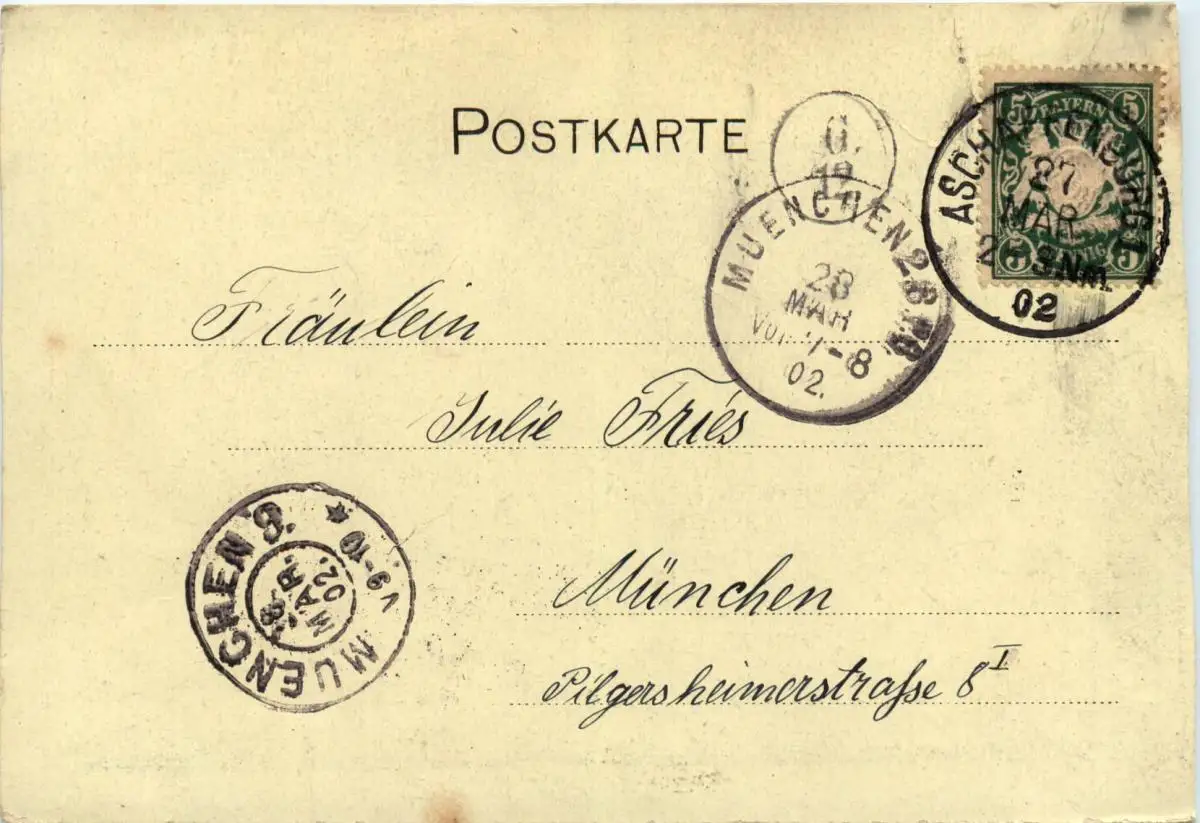 POSTKARTE
G.
12
5 BAYERN 5
5 5
ASCHAFFENBURG 1
27
MAR
3 Nm.
02
MUENCHEN 2 B.
28
MAR
Vor. 7-8
02.
Fräulein
Julie Fries
MUENCHEN 9. ★ V 9-10
28.
MAR.
02.
MUENCHEN
München
Pilgersheimerstraße 8 I